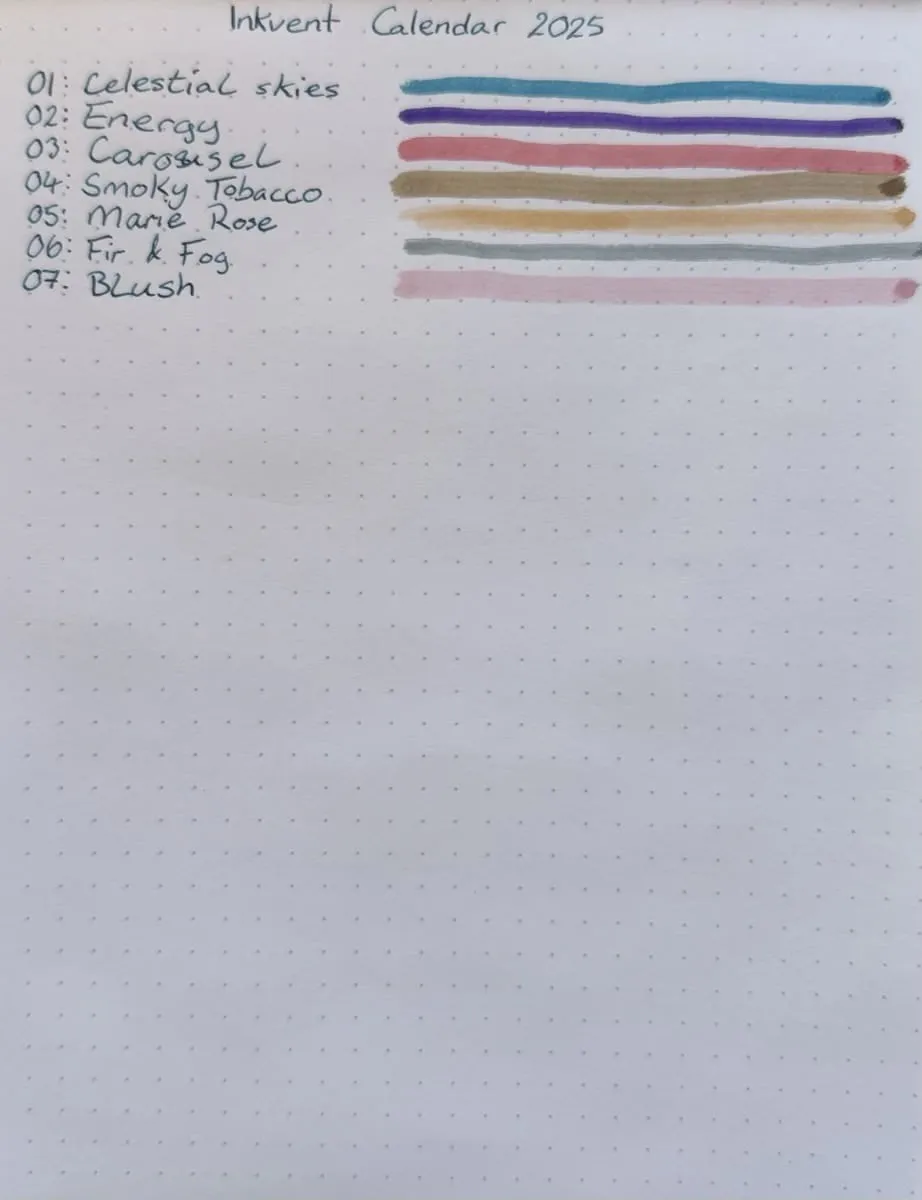 Inkvent Calendar 2025
01: Celestial skies
02: Energy
03: Carousel
04: Smoky Tobacco
05: Marie Rose
06: Fir & Fog
07: Blush